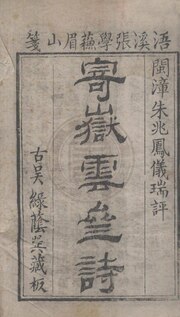 浯溪張學蘇眉山箋
閩漳朱兆鳳儀瑞評
寄嶽雲亝詩
古吳綠蔭堂藏板